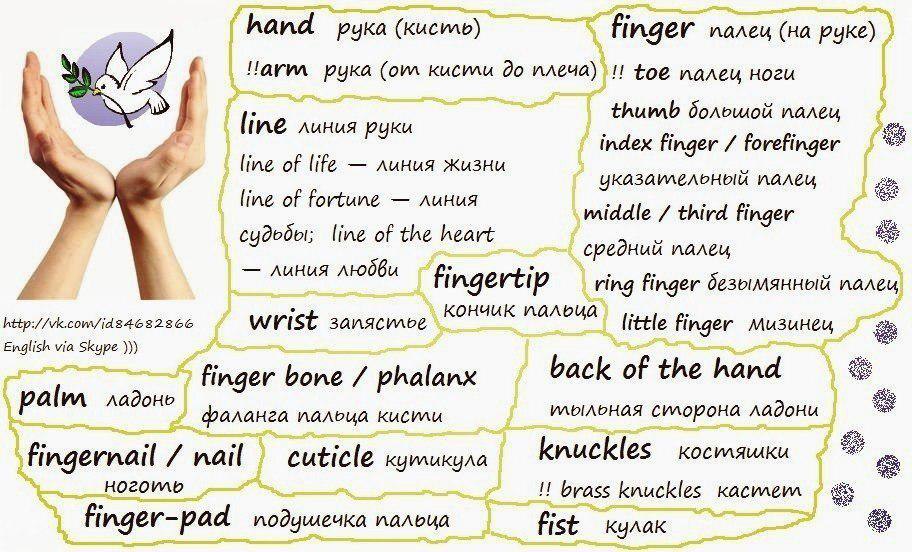 hand рука (кисть)
!!arm рука (от кисти до плеча)
finger палец (на руке)
!! toe палец ноги
thumb большой палец
index finger / forefinger
указательный палец
middle / third finger
средний палец
ring finger безымянный палец
little finger мизинец
line линия руки
line of life — линия жизни
line of fortune — линия
судьбы; line of the heart
— линия любви
fingertip
кончик пальца
wrist запястье
http://vk.com/id84682866
English via Skype )))
palm ладонь
finger bone / phalanx
фаланга пальца кисти
back of the hand
тыльная сторона ладони
fingernail / nail
ноготь
cuticle кутикула
knuckles костяшки
!! brass knuckles кастет
finger-pad подушечка пальца
fist кулак